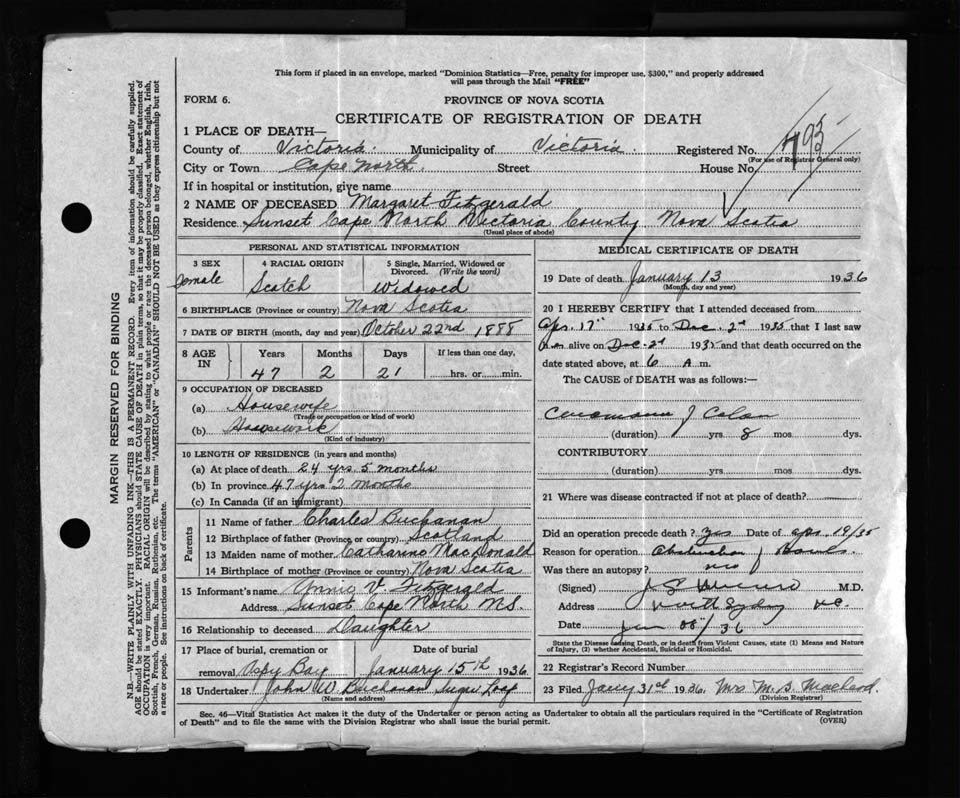 This form if placed in an envelope, marked "Dominion Statistics—Free, penalty for improper use, $300," and properly addressed
will pass through the Mail "FREE"
FORM 6.
PROVINCE OF NOVA SCOTIA
CERTIFICATE OF REGISTRATION OF DEATH
1 PLACE OF DEATH—
County of Victoria. Municipality of Victoria. Registered No. 795
(For use of Registrar General only)
City or Town Cape North. Street House No.
If in hospital or institution, give name
2 NAME OF DECEASED Margaret Fitzgerald
Residence Sunset Cape North Victoria County Nova Scotia
(Usual place of abode)
PERSONAL AND STATISTICAL INFORMATION
3 SEX Female
4 RACIAL ORIGIN Scotch
5 Single, Married, Widowed or Divorced. (Write the word) Widowed
6 BIRTHPLACE (Province or country) Nova Scotia
7 DATE OF BIRTH (month, day and year) October 22nd 1888
8 AGE IN Years Months Days If less than one day,
47 2 21 hrs. or min.
9 OCCUPATION OF DECEASED
(a) Housewife
(Trade occupation or kind of work)
(b) Housework
(Kind of industry)
10 LENGTH OF RESIDENCE (in years and months)
(a) At place of death 24 yrs. 5 months
(b) In province 47 yrs 2 months
(c) In Canada (if an immigrant)
Parents
11 Name of father Charles Buchanan
12 Birthplace of father (Province or country) Scotland
13 Maiden name of mother Catharine MacDonald
14 Birthplace of mother (Province or country) Nova Scotia
15 Informant's name Annie V. Fitzgerald
Address Sunset Cape North N.S.
16 Relationship to deceased Daughter
17 Place of burial, cremation or removal Aspy Bay
Date of burial January 15th 1936
18 Undertaker John W Buchanan Sugar Loaf
(Name and address)
MEDICAL CERTIFICATE OF DEATH
19 Date of death January 13 1936
(Month, day and year)
20 I HEREBY CERTIFY that I attended deceased from
Apr. 17" 1935 to Dec. 2nd 1935 that I last saw
alive on Dec 2d 1935 and that death occurred on the
date stated above, at 6 A m.
The CAUSE of DEATH was as follows:
Colon
(duration) yrs. 8 mos. dys.
CONTRIBUTORY
(duration) yrs. mos. dys.
21 Where was disease contracted if not at place of death?
Did an operation precede death? Yes Date of Apr 19/35
Reason for operation Obstruction of Bowels
Was there an autopsy? no
(Signed) M.D.
Address North Sydney
Date Jan /36
State the Disease causing Death, or in death from Violent Causes, state (1) Means and Nature
of Injury, (2) whether Accidental, Suicidal or Homicidal.
22 Registrar's Record Number
23 Filed Jany 31st 1936 Mrs. M. MacLeod.
(Division Registrar)
Sec. 46—Vital Statistics Act makes it the duty of the Undertaker or person acting as Undertaker to obtain all the particulars required in the "Certificate of Registration
of Death" and to file the same with the Division Registrar who shall issue the burial permit.
(OVER)
MARGIN RESERVED FOR BINDING
N.B.—WRITE PLAINLY WITH UNFADING INK—THIS IS A PERMANENT RECORD. Every item of information should be carefully supplied.
AGE should be stated EXACTLY. PHYSICIANS should STATE CAUSE OF DEATH in plain terms, so that it may be properly classified. Exact statement of
OCCUPATION is very important. RACIAL ORIGIN will be described by stating to what people or race the deceased person belonged, whether English, Irish,
Scottish, French, German, Russian, Ruthenian, etc. The terms "AMERICAN" or "CANADIAN" SHOULD NOT BE USED as they express citizenship but not
a race or people. See instructions on back of certificate.